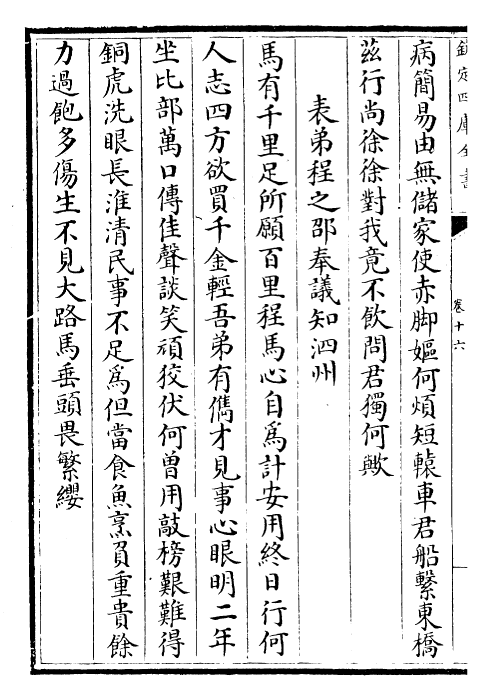 欽定四庫全書
卷十六
病簡易由無儲家使赤脚嫗何煩短轅車君船繫東橋
茲行尚徐徐對我竟不飲問君獨何歟
表弟程之邵奉議知泗州
馬有千里足所願百里程馬心自爲計安用終日行何
人志四方欲買千金輕吾弟有儁才見事心眼明二年
坐比部萬口傳佳聲談笑頑狡伏何曾用敲榜艱難得
銅虎洗眼長淮清民事不足爲但當食魚烹負重貴餘
力過飽多傷生不見大路馬垂頭畏繁纓